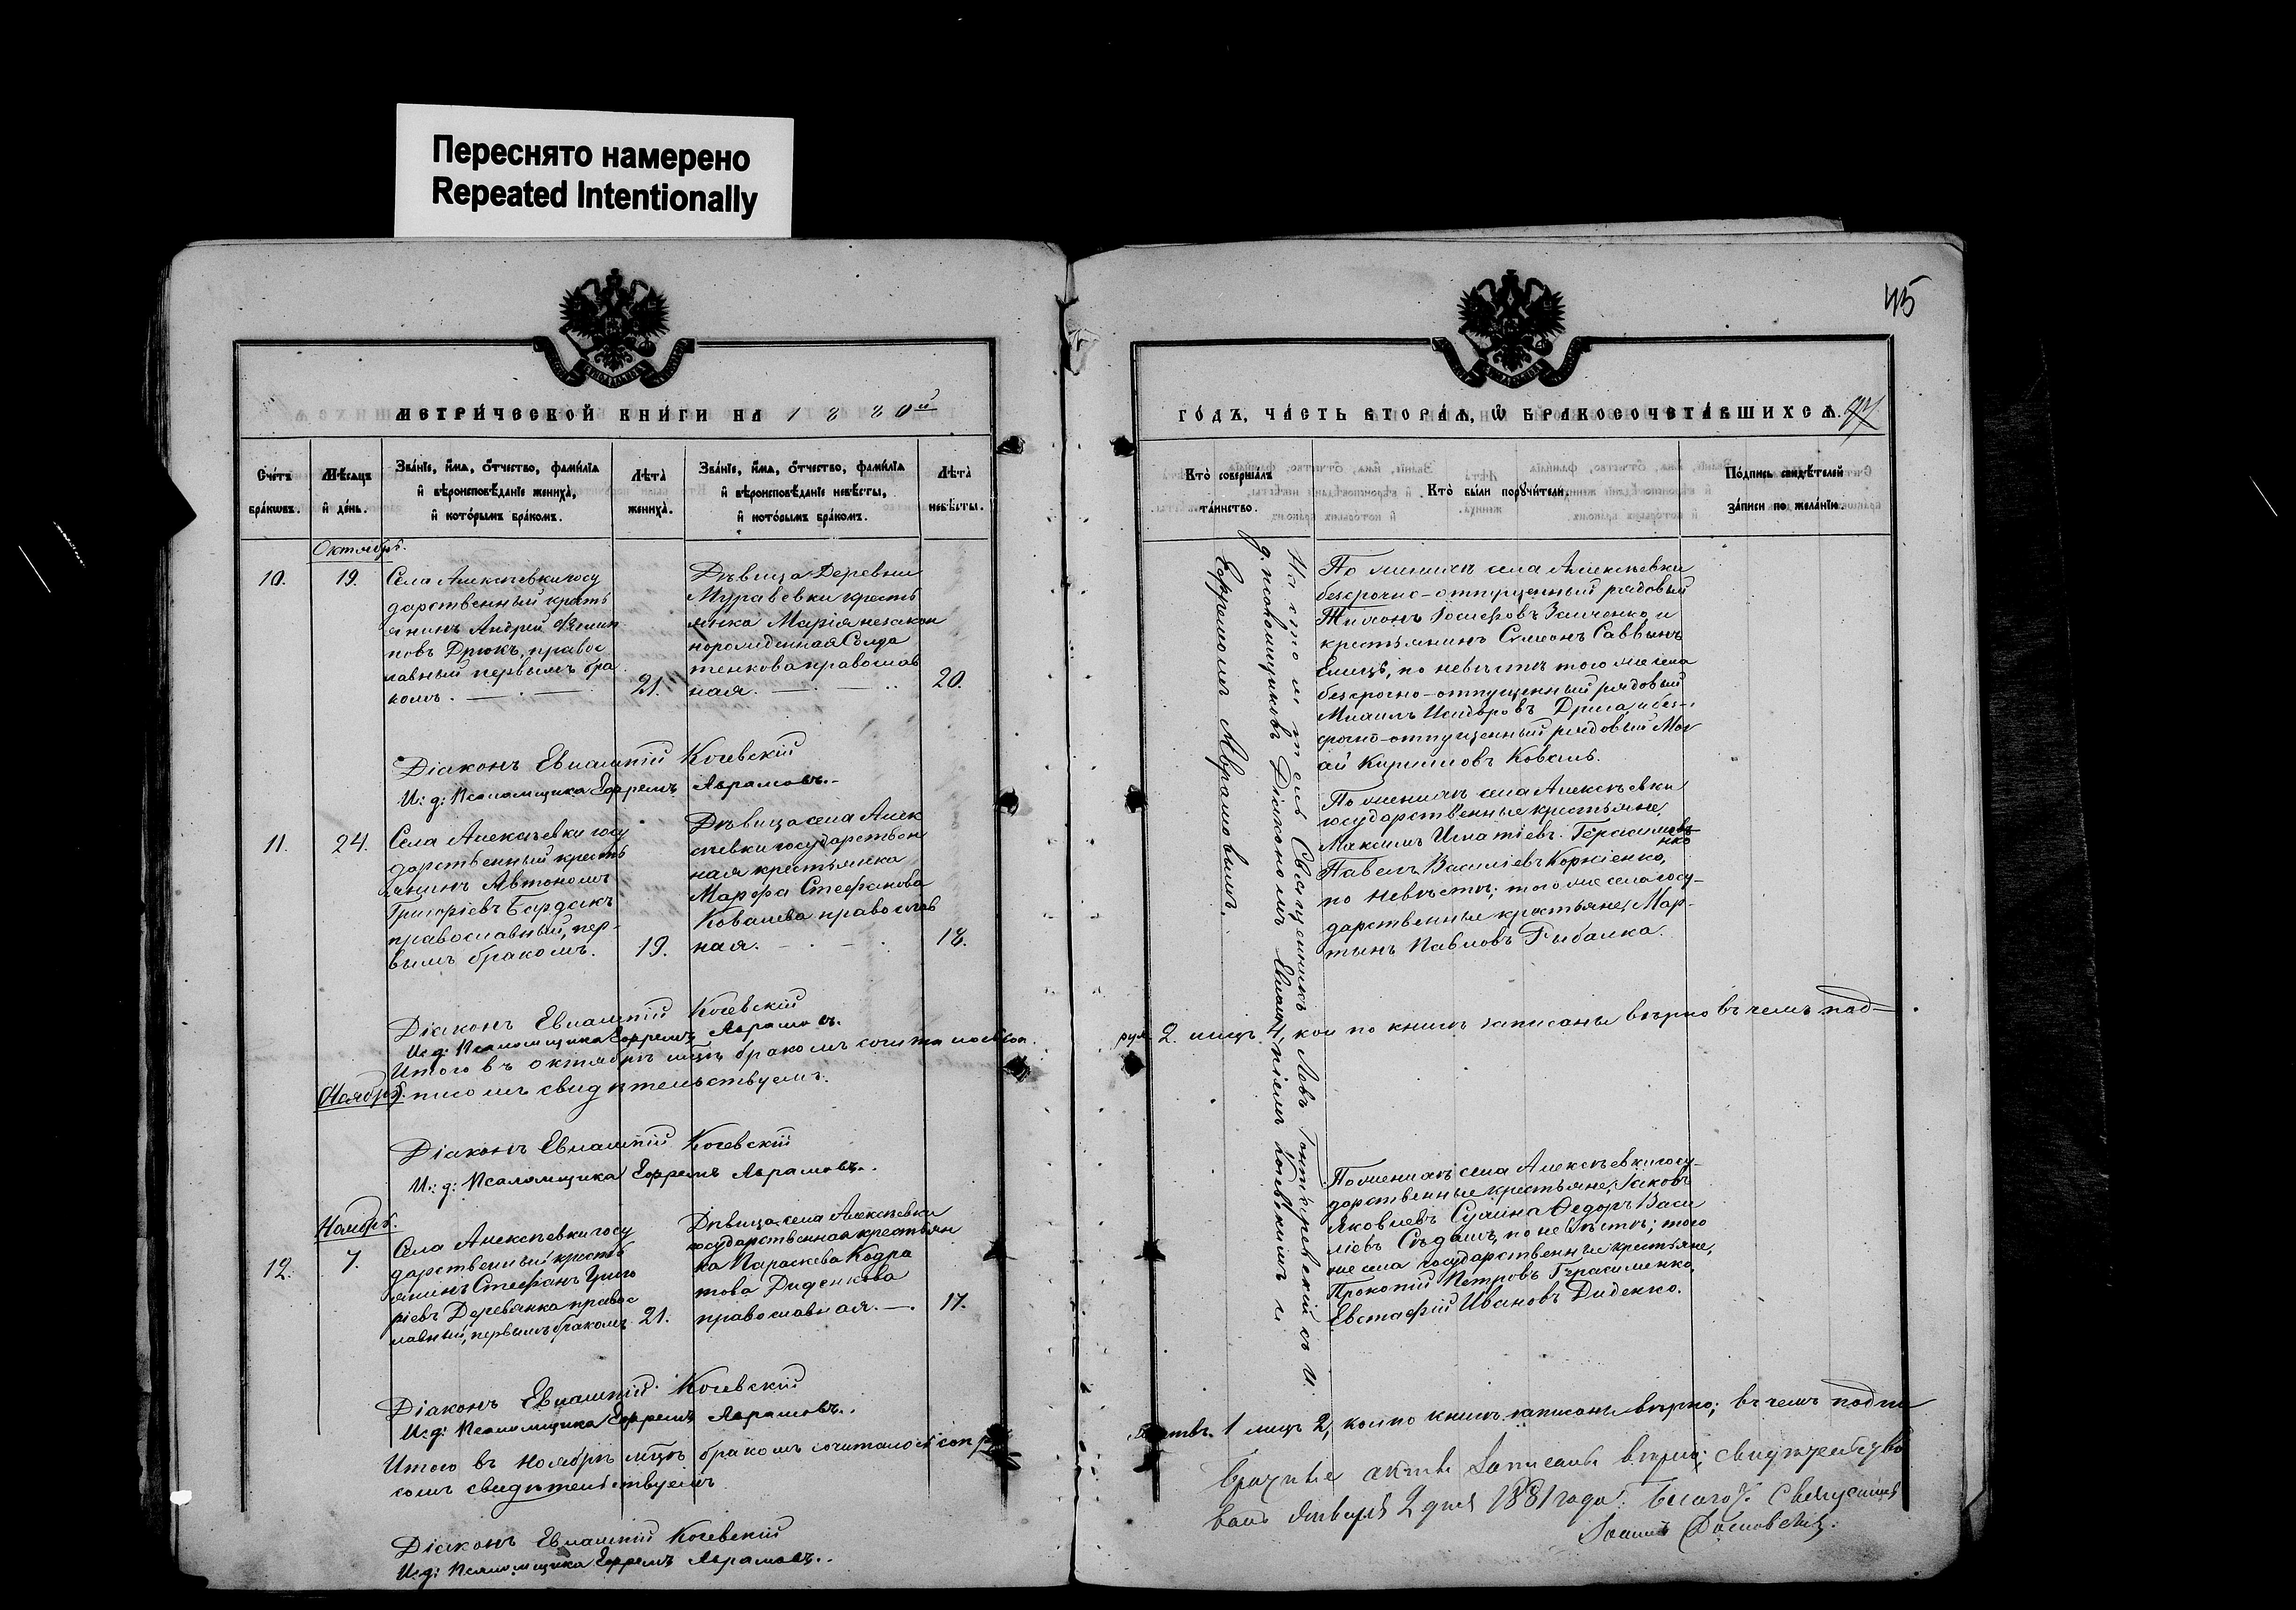 Переснято намерено
Repeated Intentionally
45
МЕТРИ́ЧЕСКОЙ КНИ́ГИ НА 1880й
Сче́тъ бра́кѡвъ.
Мѣ́сяцъ и҆ де́нь.
Зва́нїе, и҆́мѧ, ѻ҆́тчество, фами́лїѧ
и҆ вѣроисповѣ́данїе жениха̀,
и҆ кото́рымъ бра́комъ.
Лѣта̀ жениха̀.
Зва́нїе, и҆́мѧ, ѻ҆́тчество, фами́лїѧ
и҆ вѣроисповѣ́данїе невѣ́сты,
и҆ кото́рымъ бра́комъ.
Лѣта̀ невѣ́сты.
Октябрь.
10.
19.
Села Алексѣевки госу
дарственный кресть
янинъ Андрей Филип
повъ Дрюкъ, правос
лавный первымъ бра
комъ.
21.
Дѣвица Деревни
Муравевки кресть
янка Марія незакон
норожденная Солда
тенкова православ
ная.
20.
Діаконъ Евлампій Кочевскій
И: д: Псаломщика Ефремъ Аврамовъ.
11.
24.
Села Алексѣевки госу
дарственный кресть
янинъ Автономъ
Григоріевъ Бардакъ
православный, пер-
вымъ бракомъ.
19.
Дѣвица села Алек
сѣевки государствен
ная крестьянка
Марфа Стефанова
Ковалева православ
ная.
18.
Діаконъ Евлампій Кочевскій
И: д: Псаломщика Ефремъ Аврамовъ.
Итого въ октябрѣ мцѣ бракомъ сочиталось
Ноябрь. писомъ свидѣтельствуемъ.
Діаконъ Евлампій Кочевскій
И: д: Псаломщика Ефремъ Аврамовъ.
Ноябрь.
12.
7.
Села Алексѣевки госу
дарственный кресть
янинъ Стефанъ Григо
ріевъ Деревянка правос
лавный, первымъ бракомъ
21.
Дѣвица села Алексѣевки
государственная крестьян
ка Параскева Кодра
това Диденкова
православная.
17.
Діаконъ Евлампій Кочевскій
И: д: Псаломщика Ефремъ Аврамовъ.
Итого въ Ноябрѣ мцѣ бракомъ сочиталось сопр
сомъ свидѣтельствуемъ
Діаконъ Евлампій Кочевскій
И: д: Псаломщика Ефремъ Аврамовъ.
ГО́ДЪ, ЧА́СТЬ ВТОРА́Ѧ, Ѡ҆ БРАКОСОЧЕТА́ВШИХСѦ.
Кто̀ соверша́лъ та́инство.
Кто̀ бы́ли порꙋчи́тели.
По́дпись свидѣ́телей
за́писи по жела́нїю.
Настоятель Священникъ Левъ съ И.
д. псаломщикомъ Діакономъ Евлампіемъ Кочевскимъ и
Ефремомъ Аврамовымъ.
По женихѣ села Алексѣевки
безсрочно-отпущенный рядовый
Тихонъ Іосифовъ Заиченко и
крестьянинъ Симеонъ Саввинъ
Емецъ, по невѣстѣ того же села
безсрочно-отпущенный рядовый
Михаилъ Исидоровъ и без-
срочно-отпущенный рядовый
Кириловъ Коваль.
По женихѣ села Алексѣевки
государственные крестьяне,
Максимъ Игнатіевъ Герасименко
Павелъ Василіевъ Корніенко,
по невѣстѣ; того же села госу-
дарственные крестьяне, Мар-
тынъ Павловъ Рыбалка.
2. лицъ 4, кои по книгѣ записаны вѣрно въ чемъ под-
По женихѣ села Алексѣевки госу-
дарственные крестьяне, Іаковъ
Яковлевъ Ѳедоръ Васи
ліевъ по невѣстѣ; того
же села государственные крестьяне,
Прокопій Петровъ Герасименко
Евстафій Ивановъ Диденко.
1 лицъ 2, кои по книгѣ записаны вѣрно; въ чемъ подпи
Брачные акты записаны вѣрно; свидѣтельство
валъ Января 2 дня 1881 года. Священникъ
Іоаннъ